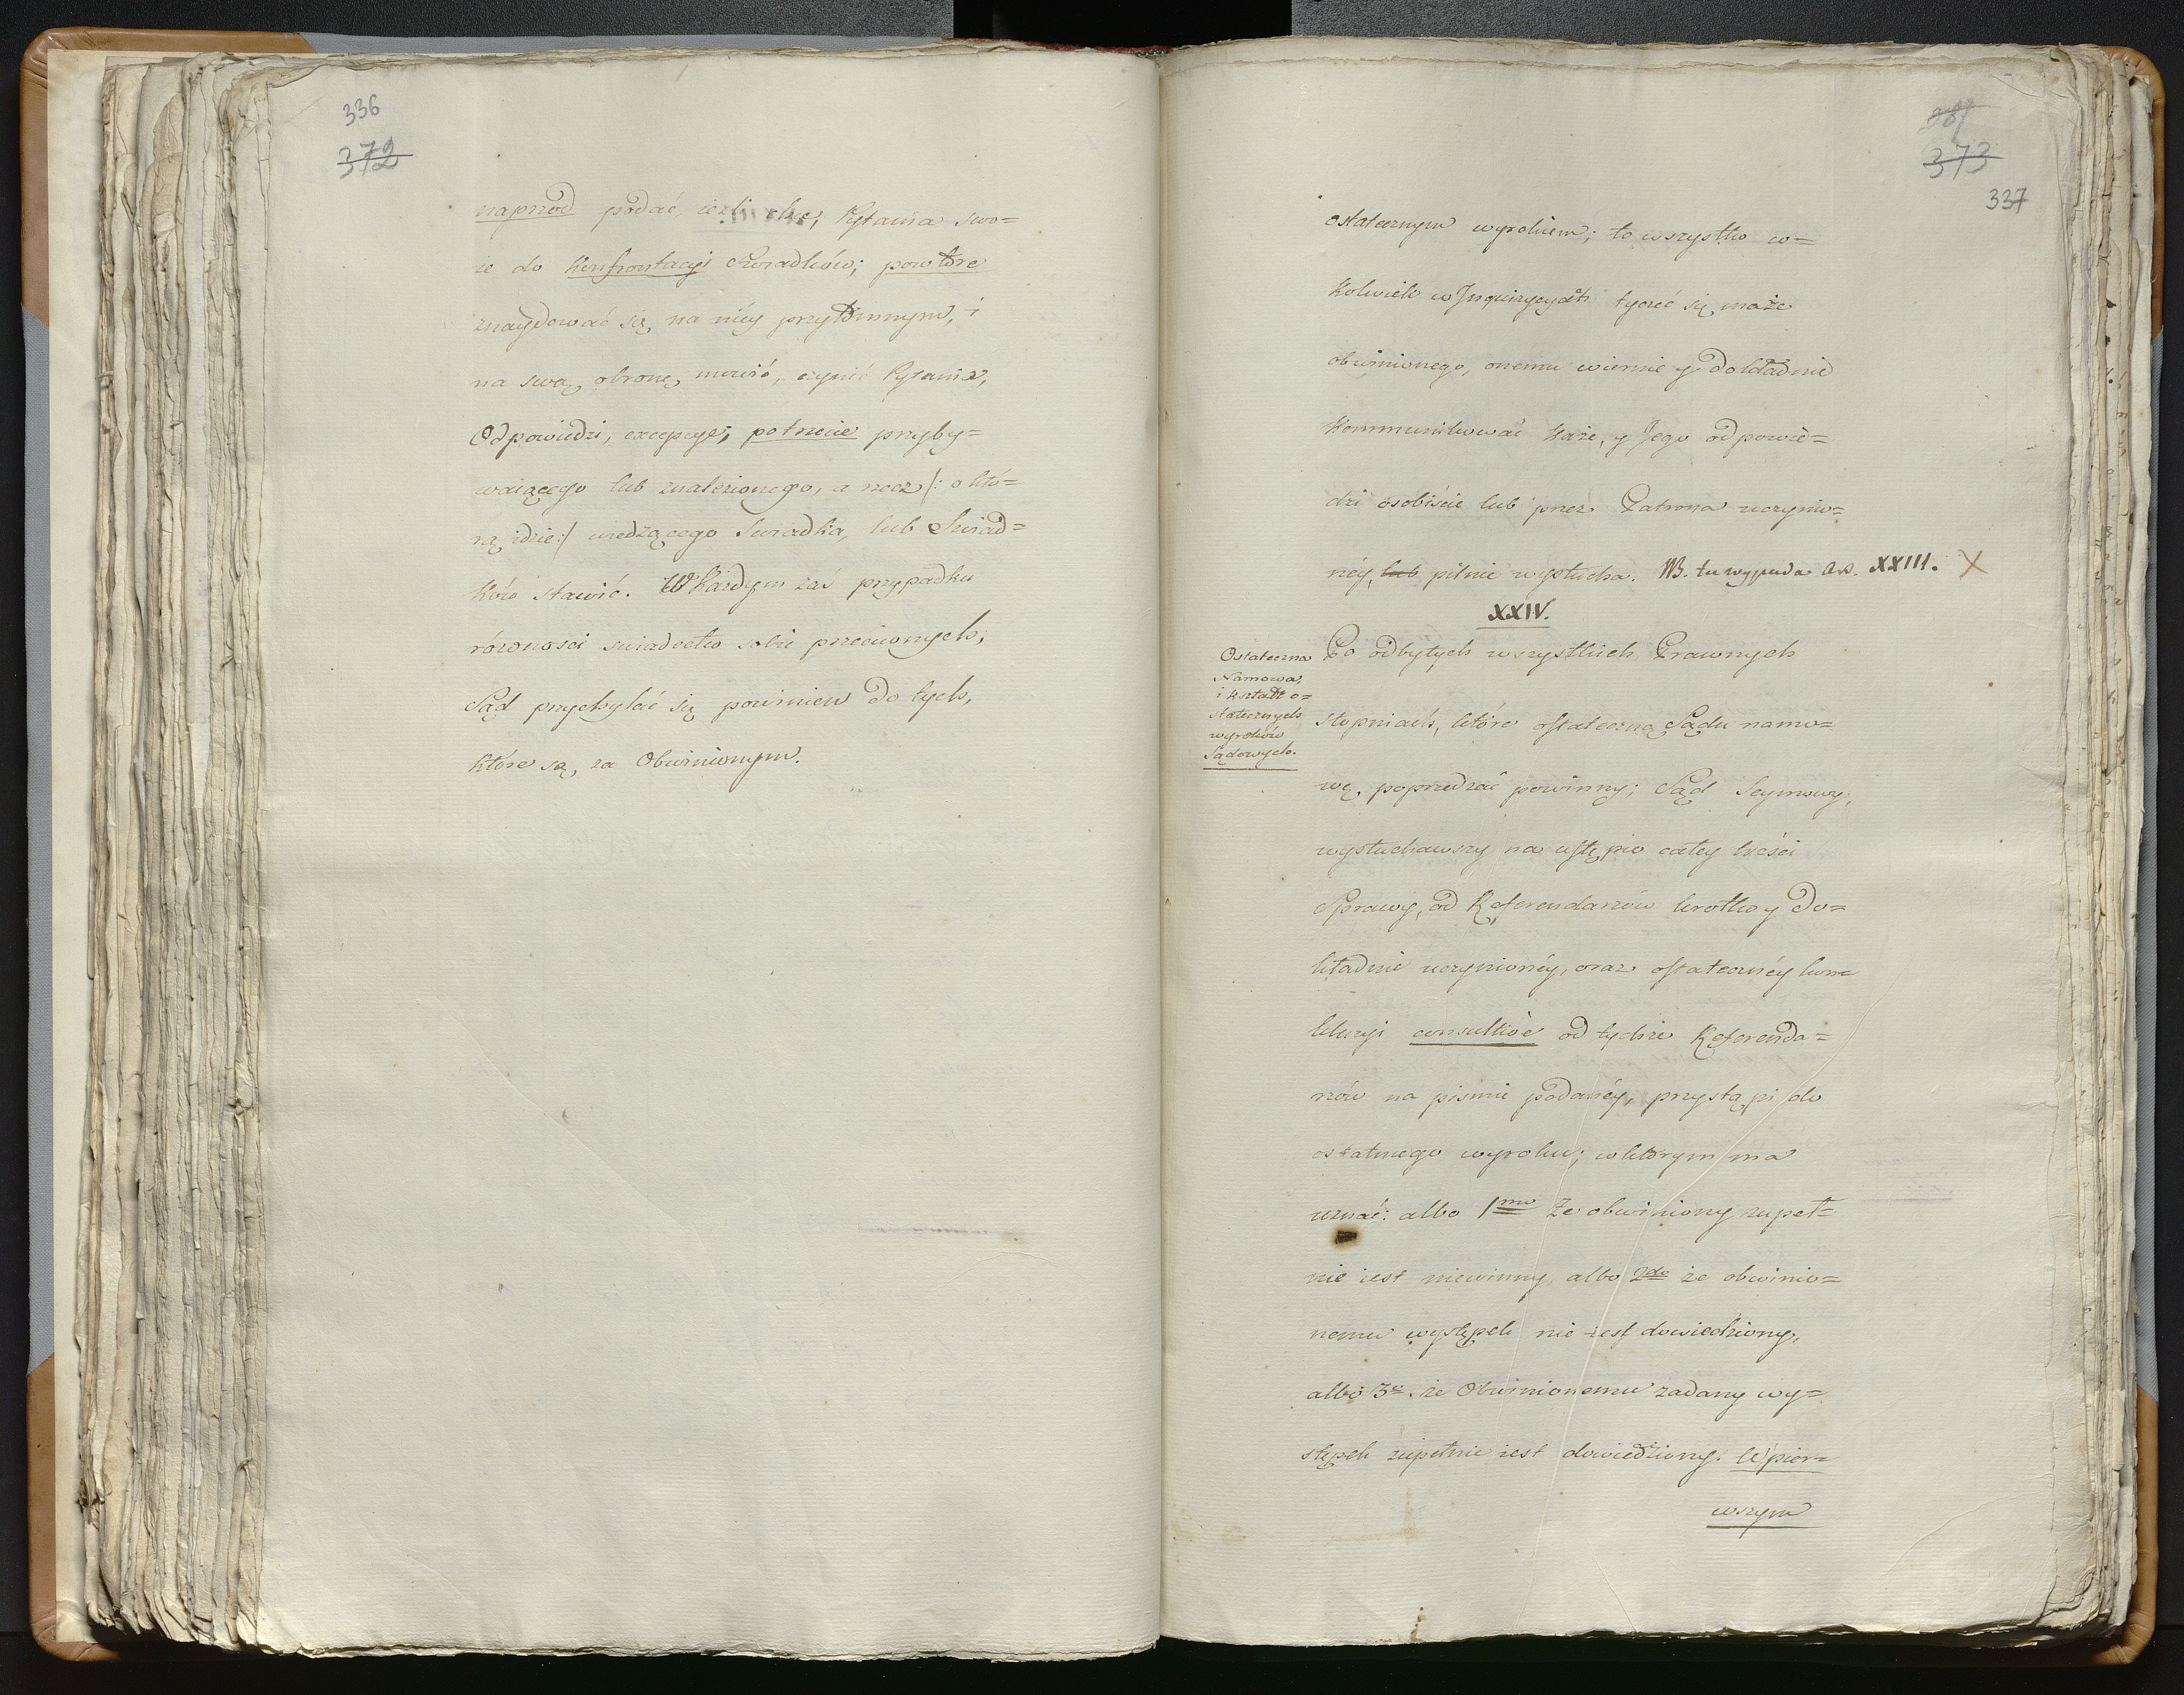 336
372
naprzod podać, iezli chce, Pytania swo=
ie do Konfrontacyi Swiadków; powtóre
znaydować się na niéy przytomnym, i
na swą obronę mówić, czynić Pytania,
Odpowiedzi, excepcye; potrzecie przyby=
waiącego lub znalezionego, a rzecz /: o któ=
rą idzie :/ wiedzącego Swiadka, lub Swiad=
ków stawić. W Każdym zaś przypadku
równosci swiadectw sobie przeciwnych,
Sąd przychylać się powinien do tych,
które są, za Obwinionym.
373
337
ostatecznym wyrokiem; to wszystko co=
kolwiek w Inquizycyach tyczeć się może
obwinionego, onemu wiernie y dokładnie
Kommunikować każe, y Jego odpowie=
dzi osobiście lub przez Patrona uczynio=
néy, lub pilnie wysłucha. NB. tu wypada Art. XXIII. X
XXIV.
Ostateczna
Namowa,
i kształt o=
statecznych
wyroków
Sądowych.
Po odbytych wszystkich Prawnych
stopniach, które ostateczną Sądu namo=
wę, poprzedzać powinny; Sąd Seymowy,
wysłuchawszy na ustępie całey treści
Sprawy, od Referendarzów krotko y do=
kładnie uczynionéy, oraz ostatecznéy kon=
kluzyi consultivè od tychże Referenda=
rzów na pismie podanéy, przystąpi do
ostatniego wyroku; w którym ma
uznać: albo 1mo Że obwiniony zupeł=
nie iest niewinny, albo 2do że obwinio=
nemu występek nie iest dowiedziony,
albo 3o. że Obwinionemu zadany wy=
stępek zupełnie iest dowiedziony. W pier=
wszym